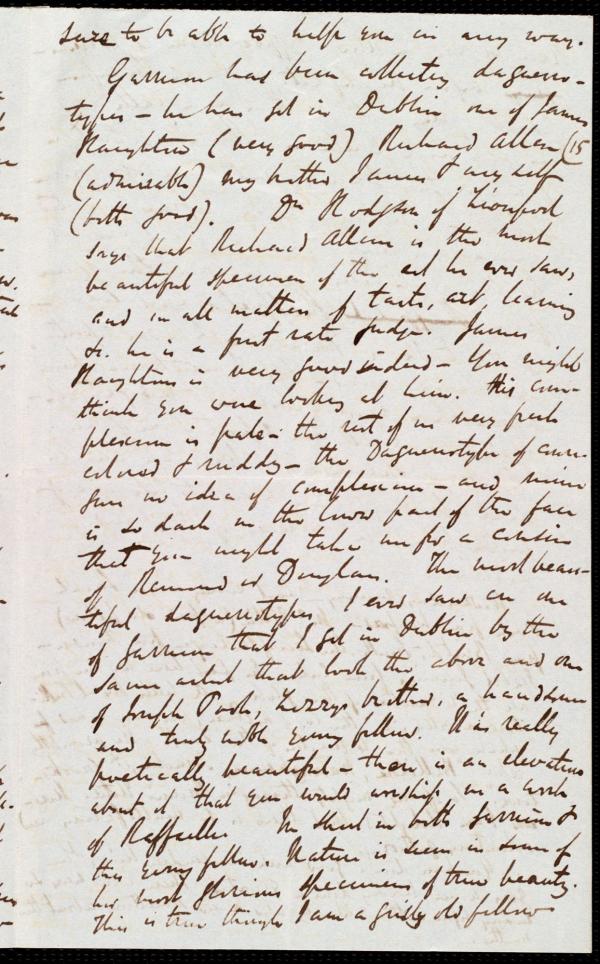 sure to be able to help you in any way.
Garrison has been collecting daguerro-
types - he has got in Dublin one of James
Haughton (very good) Richard Allen (15
(admirable) my brother James & myself
(both good). Dr Hodgson of Liverpool
says that Richard Allen is the most
beautiful specimen of the art he ever saw,
and in all matters of taste, art, learning
&c. he is a first rate judge. James
Haughton is very good indeed - You might
think you were looking at him. His com-
plexion is pale - the rest of us very fresh
colored & ruddy - the Daguerrotype of course
gives no idea of complexion - and mine
is so dark in the lower part of the face
that you might take me for a cousin
of Remond or Douglass. The most beau-
tiful daguerreotypes I ever saw are one
of Garrison that I got in Dublin by the
same artist that took the above and one
of Joseph Poole, Lizzy's brother, a handsome
and truly noble young fellow. It is really
poetically beautiful - there is an elevation
about it that you would worship in a work
of Raffaelle. The in both Garrison &
this young fellow. Nature is seen in some of
her most glorious specimens of true beauty.
This is true though I am a grisly old fellow